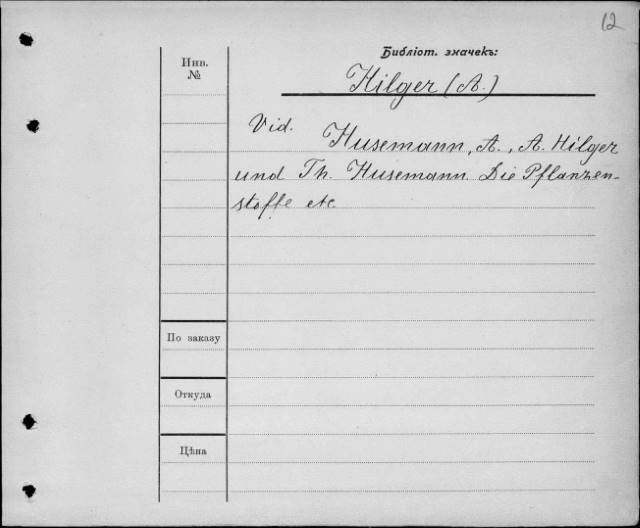 12
Библіот. значекъ:
Инв.
№
Hilger (A.)
Vid. Husemann, A., A. Hilger
und Th. Husemann. Die Pflanzen-
stoffe etc.
По заказу
Откуда
Цѣна